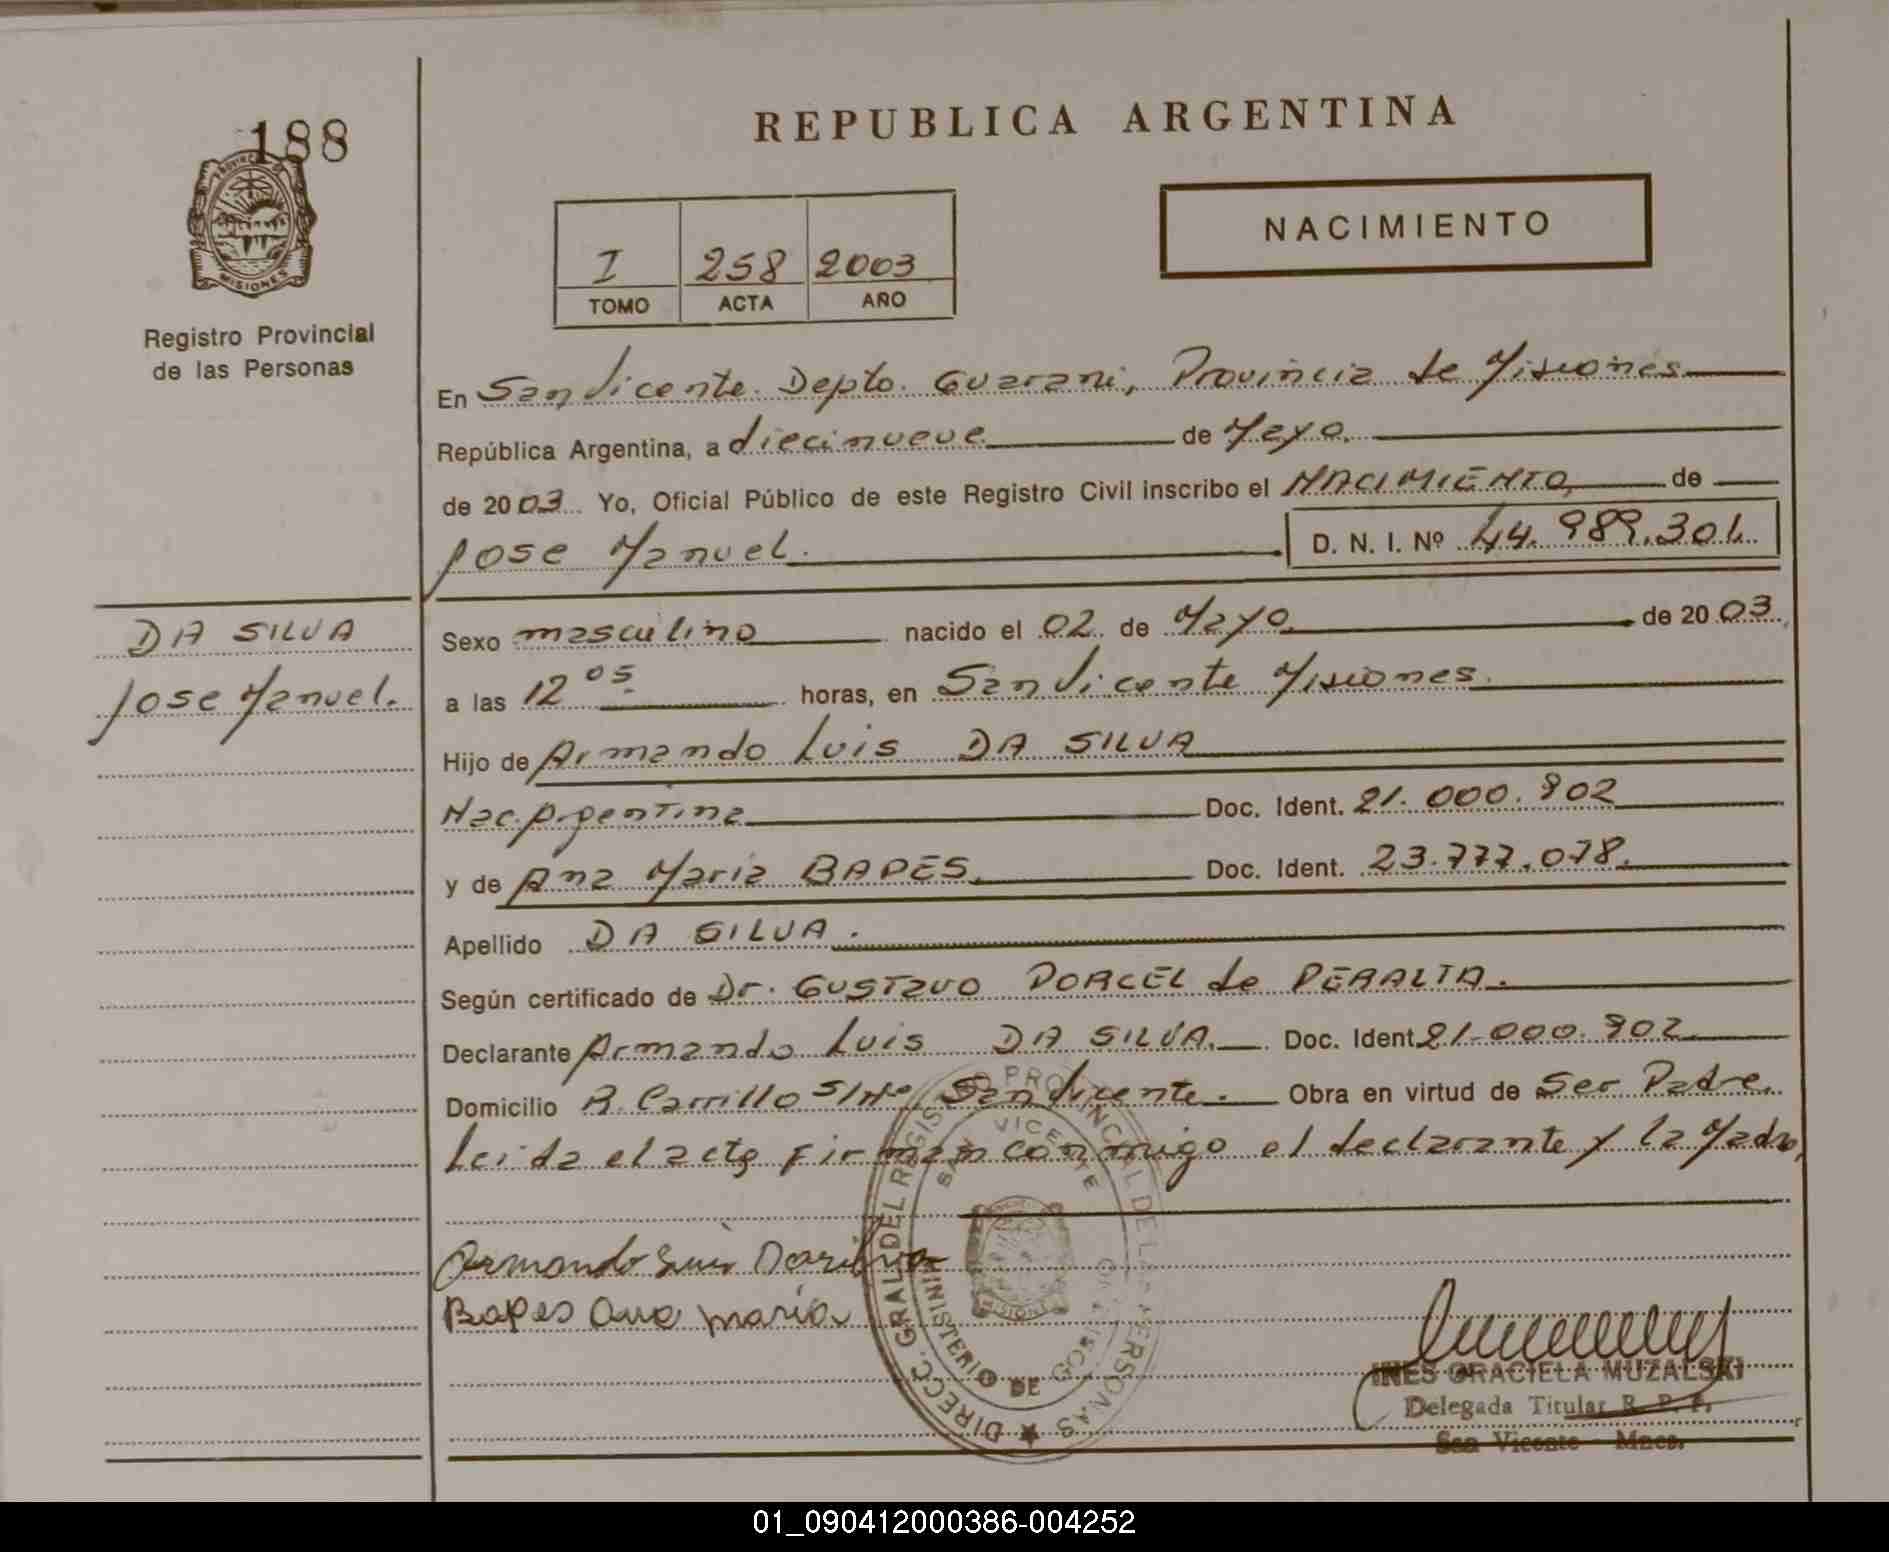 188
REPUBLICA ARGENTINA
PROVINCIA DE
MISIONES
Registro Provincial
de las Personas
NACIMIENTO
I 258 2003
TOMO ACTA AÑO
En San Vicente. Depto. Guarani, Provincia de Misiones
República Argentina, a diecinueve de Mayo.
de 2003. Yo, Oficial Público de este Registro Civil inscribo el NACIMIENTO, de
Jose Manuel. D. N. I. Nº 44.989.301.
DA SILVA
Jose Manuel.
Sexo masculino nacido el 02 de Mayo de 2003.
a las 12 05. horas, en San Vicente Misiones.
Hijo de Armando Luis DA SILVA
Nac. Argentina Doc. Ident. 21.000.902
y de Ana Maria BAPES. Doc. Ident. 23.777.078.
Apellido DA SILVA.
Según certificado de Dr. GUSTAVO PORCEL de PERALTA.
Declarante Armando Luis DA SILVA. Doc. Ident. 21.000.902
Domicilio R. Carrillo S/Nº San Vicente. Obra en virtud de Ser Padre.
Leida el acta firman conmigo el declarante y la Madre,
Armando Luis Dasilva
Bapes Ana maría
DIRECC. GRAL DEL REGISTRO PROVINCIAL DE LAS PERSONAS
SAN VICENTE
MINISTERIO DE GOBIERNO
MISIONES
INES GRACIELA MUZALSKI
Delegada Titular R. P. P.
San Vicente - Mnes.
01_090412000386-004252